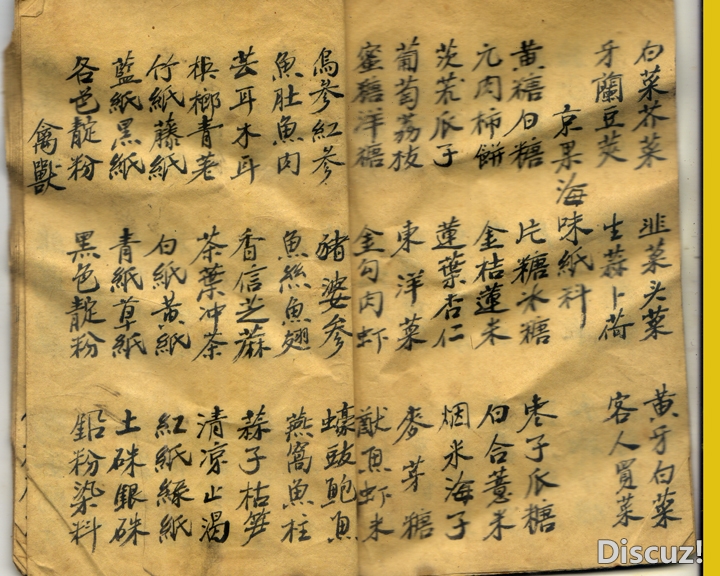 白菜芥菜 韭菜头菜 黄牙白菜
牙蘭豆荚 生蒜卜荷 客人買菜
京果海味紙料
黄糖白糖 片糖冰糖 枣子瓜糖
元肉柿餅 金桔蓮米 白合薏米
茨菰瓜子 蓮葉杏仁 烟米海子
葡萄荔枝 東洋菜 麥芽糖
蜜糖洋糖 金勾肉虾 魷魚虾米
烏參紅參 豬婆參 蠔豉鮑魚
魚肚魚肉 魚絲魚翅 燕窩魚柱
芸耳木耳 香信芝蔴 蒜子枯笋
梹榔青荖 茶葉冲茶 清凉止渴
竹紙藤紙 白紙黄紙 紅紙綠紙
藍紙黑紙 青紙草紙 土硃銀硃
各色靛粉 黑色靛粉 鉛粉染料
禽獸
Discuz!